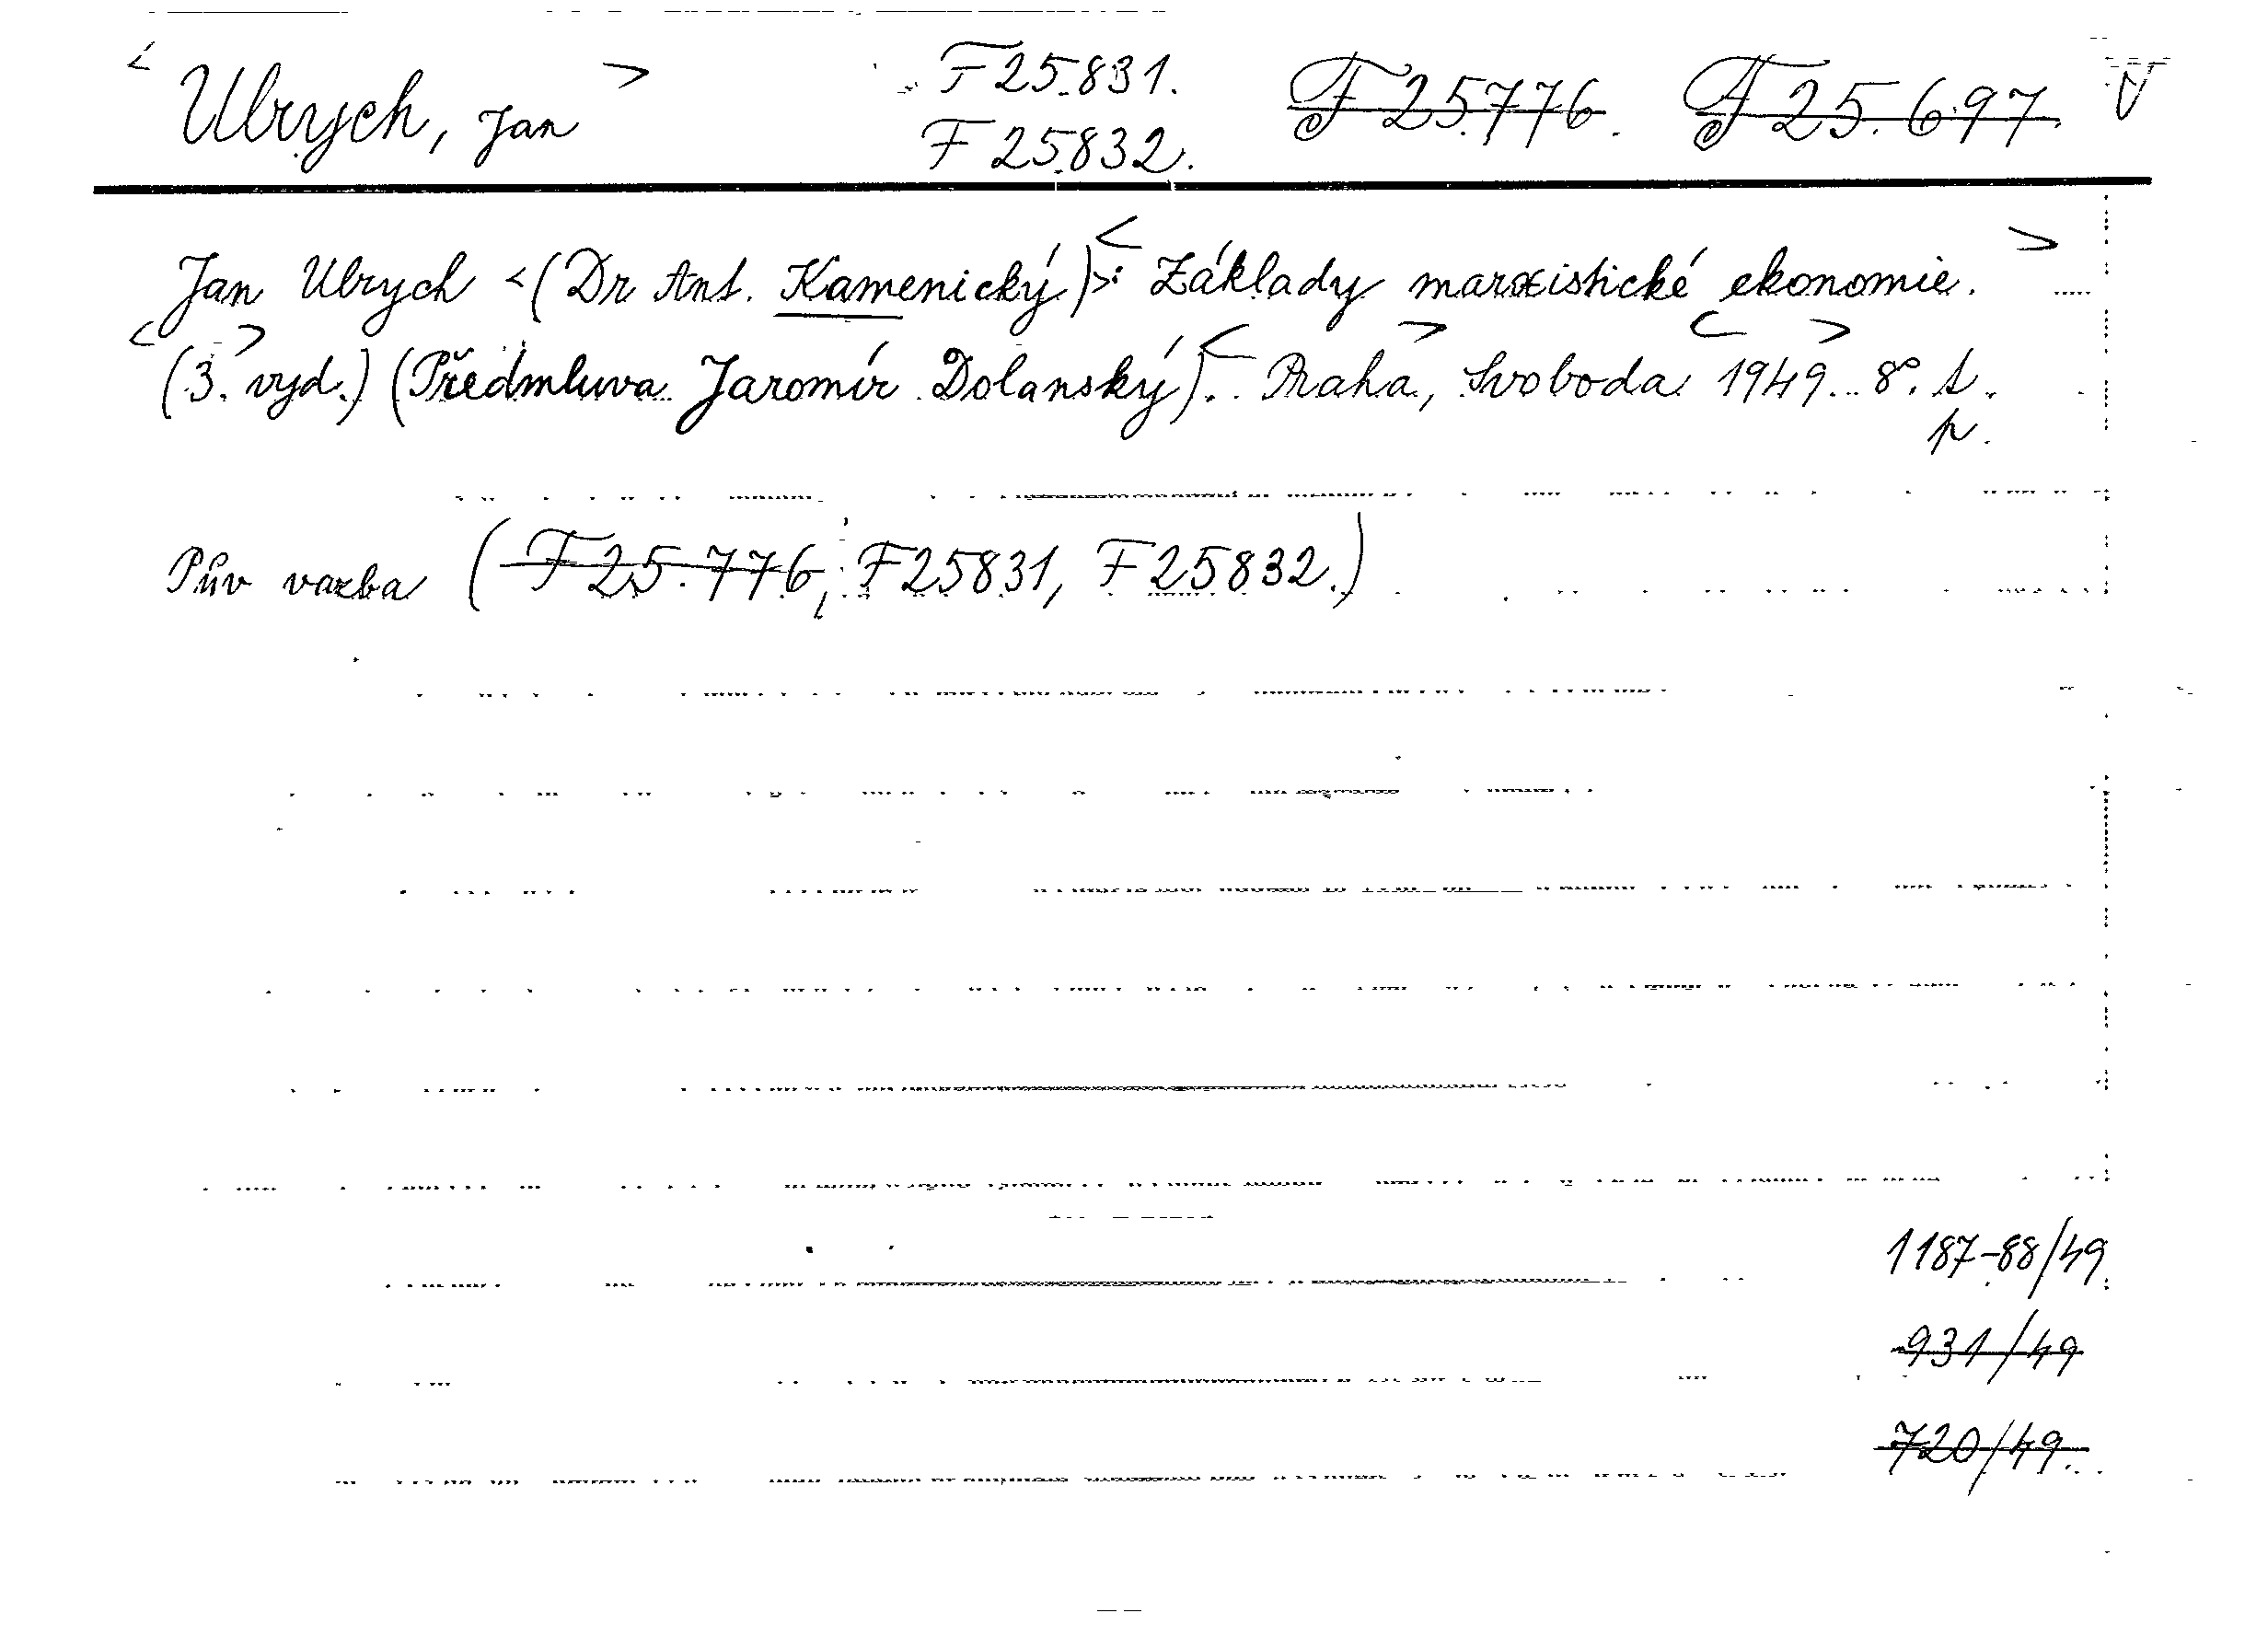 < Ulrych, Jan > F 25.831. F 25.776. F 25.697. V
F 25.832.
Jan Ulrych <(Dr Ant. Kamenický)>: < Základy marxistické ekonomie. >
< (3. > vyd.) (Předmluva Jaromír Dolanský). < Praha >, Svoboda < 1949 >. 8°. s.
p.
Pův vazba (F 25.776, F 25831, F 25832.)
1187-88/49
931/49
720/49.